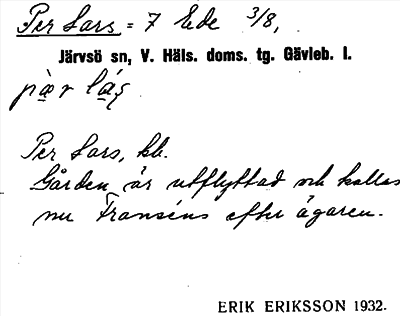 Per Lars = 7 Ede 3/8,
Järvsö sn, V. Häls. doms. tg. Gävleb. l.
pær lás
Per Lars, kb.
Gården är utflyttad och kallas
nu Franséns efter ägaren.
ERIK ERIKSSON 1932.